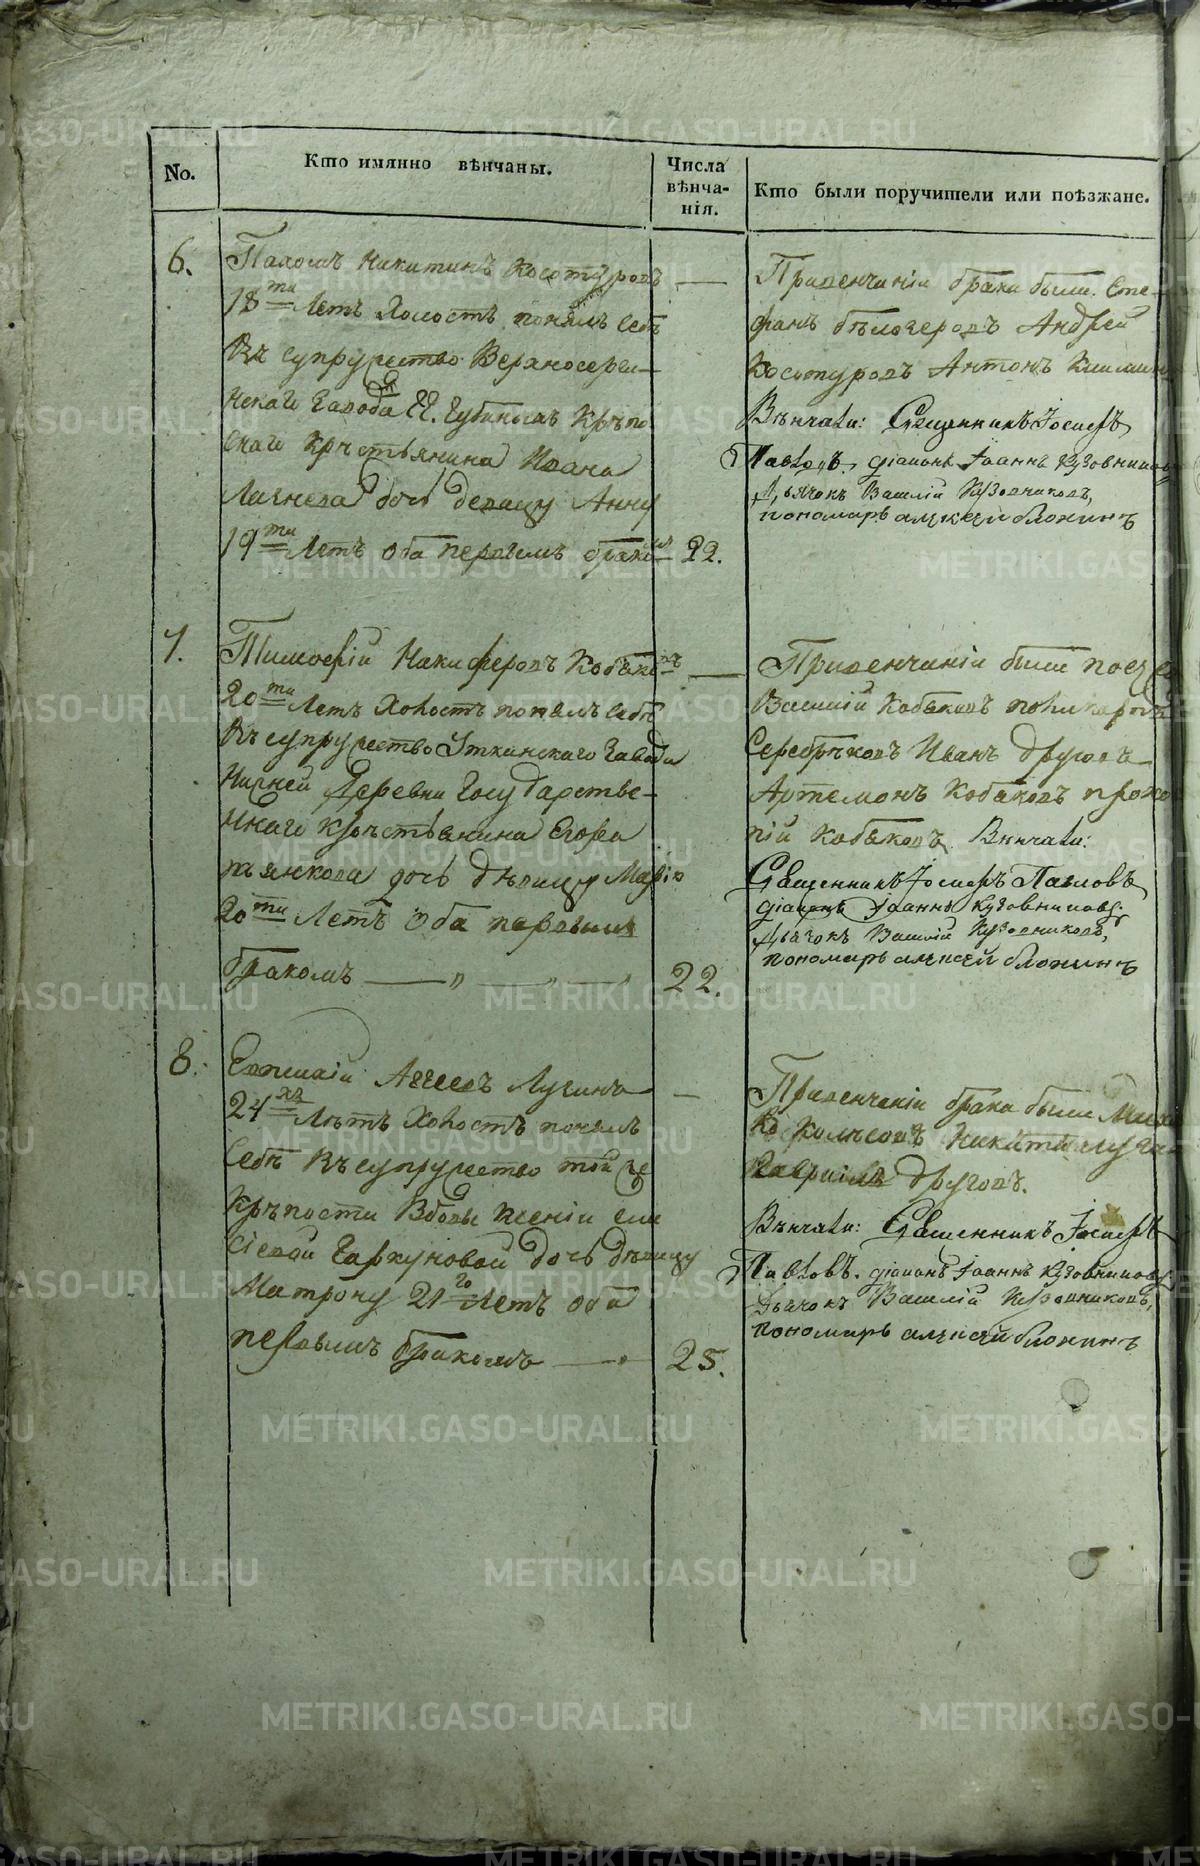 No.
Кто имянно вѣнчаны.
Числа
вѣнча-
нія.
Кто были поручители или поѣзжане.
6.
Пахомъ Никитинъ Косотуровъ
18ти Летъ Холостъ понялъ себѣ
Въ супружество Верхносерги-
нскаго Завода Г. Губиныхъ Крѣпо
скаго Крѣстьянина Ивана
дочь девицу Анну
19ти Летъ Оба первымъ бракомъ
22.
Привенчаніи брака были Сте-
фанъ Бѣлозеровъ Андрей
Косотуровъ Антонъ
Вѣнчали: Священникъ Іосифъ
Павловъ, діаконъ Іоаннъ Кузовниковъ
Дьячокъ Василій Кузовниковъ,
пономарь алексей блохинъ
7.
Тимофей Никифоровъ Кобяковъ
20ти Летъ Холостъ понялъ себѣ
Въ супружество Уткинскаго Завода
Нижней Деревни Государстве-
ннаго Крѣстьянина Егора
Пьянкова дочь дѣвицу Марію
20ти Летъ Оба первымъ
бракомъ
22.
Привенчаніи были поез
Василій Кобяковъ поликарпъ
Серебряковъ Иванъ Друговъ
Артемонъ Кобяковъ проко
пій Кобяковъ. Вѣнчали:
Священникъ Іосифъ Павловъ
діаконъ Іоаннъ Кузовниковъ
Дьячокъ Василій Кузовниковъ,
пономарь алексей блохинъ
8.
Евгеній Аггеевъ Лузинъ
24хъ Лѣтъ Холостъ понялъ
Себѣ Въ супружество той же
Крѣпости Вдовы Ксеніи Ели
сіевой дочь дѣвицу
Матрону 21го Летъ Оба
первымъ бракомъ
25.
Привенчаніи брака были
Никита Лузин
Гаврилъ Друговъ.
Вѣнчали: Священникъ Іосифъ
Павловъ. діаконъ Іоаннъ Кузовниковъ
Дьячокъ Василій Кузовниковъ,
пономарь алексей блохинъ
METRIKI.GASO-URAL.RU